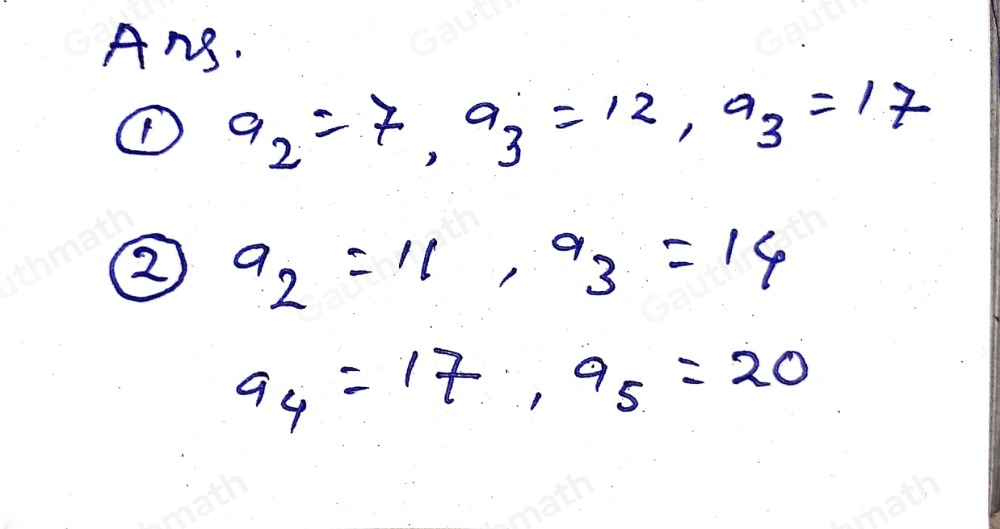 Ans.
① a₂ = 7, a₃ = 12, a₃ = 17
② a₂ = 11, a₃ = 14
a₄ = 17, a₅ = 20
Gauthmath